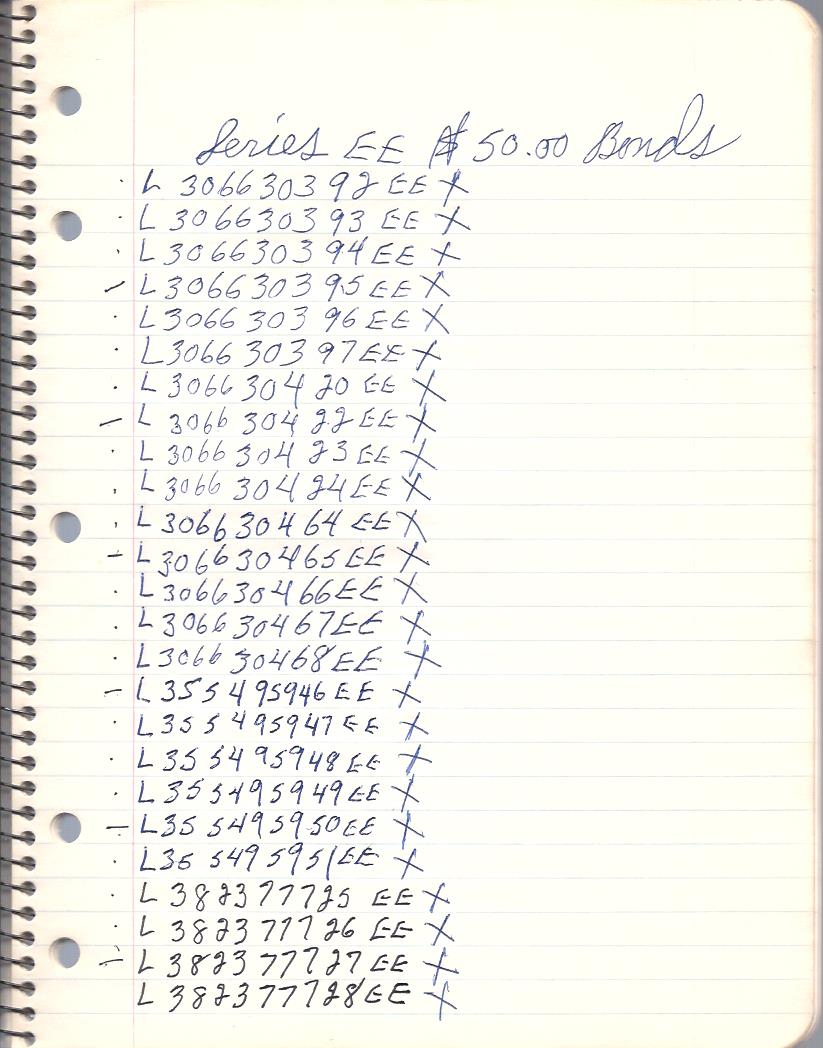 Series EE $50.00 Bonds
· L 306630392 EE X
· L 306630393 EE X
· L 306630394 EE X
– L 306630395 EE X
· L 306630396 EE X
· L 306630397 EE X
· L 306630420 EE X
– L 306630422 EE X
· L 306630423 EE X
· L 306630424 EE X
· L 306630464 EE X
– L 306630465 EE X
· L 306630466 EE X
· L 306630467 EE X
· L 306630468 EE X
– L 355495946 EE X
· L 355495947 EE X
· L 355495948 EE X
· L 355495949 EE X
– L 355495950 EE X
· L 355495951 EE X
· L 382377725 EE X
· L 382377726 EE X
– L 382377727 EE X
· L 382377728 EE X